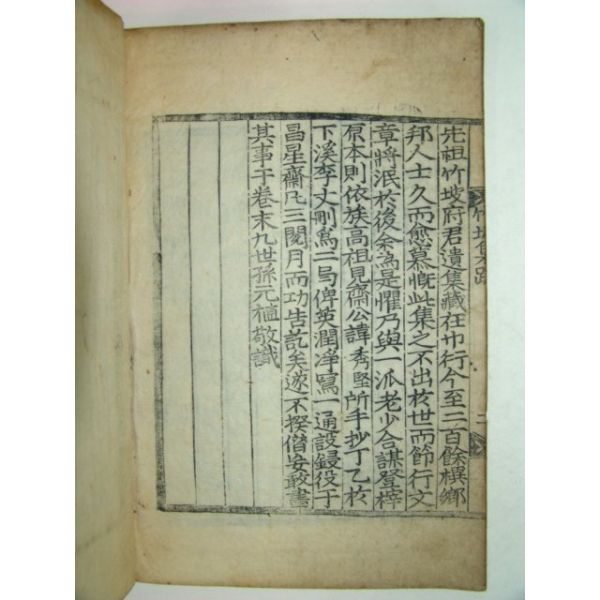 竹坡集跋
先祖竹坡府君遺集藏在巾行今至三百餘禩鄉
邦人士久而愈慕慨此集之不出於世而節行文
章將泯於後余爲是懼乃與一派老少合謀登梓
原本則依族高祖見齋公諱秀堅所手抄丁乙於
下溪李丈刪爲二局俾英潤淨寫一通設鋟役于
昌星齋凡三閱月而功告訖矣遂不揆僭妄敢書
其事于卷末九世孫元植敬識